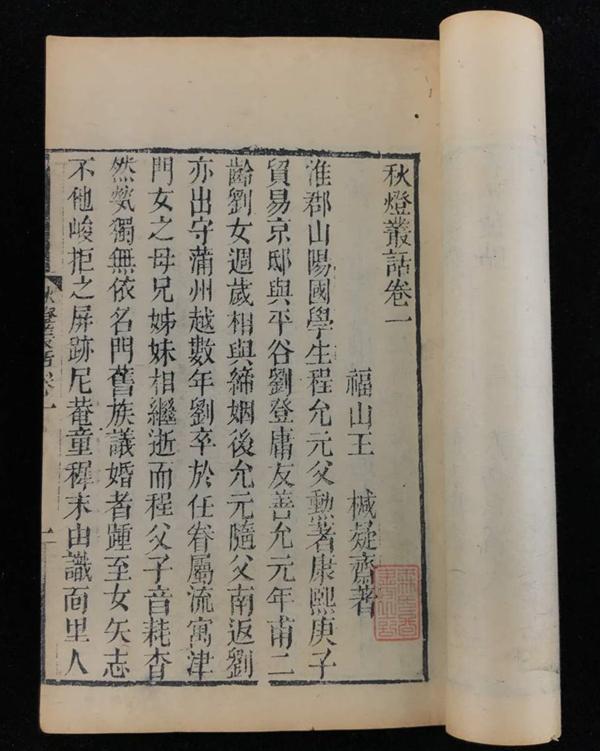 秋燈叢話卷一
福山王　椷凝齋著
淮郡山陽國學生程允元父勲著康熙庚子
貿易京邸與平谷劉登庸友善允元年甫二
齡劉女週歲相與締姻後允元隨父南返劉
亦出守蒲州越數年劉卒於任眷屬流寓津
門女之母兄姊妹相繼逝而程父子音耗杳
然煢獨無依名門舊族議婚者踵至女矢志
不他峻拒之屏跡尼菴童穉末由識面里人